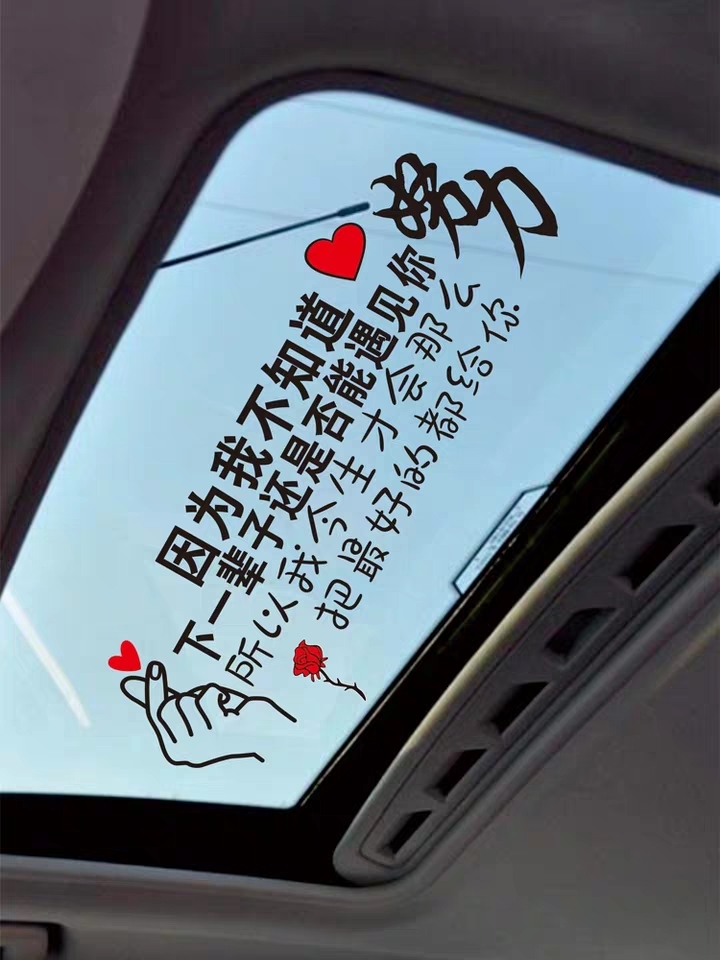 因为我不知道
下一辈子还是否能遇见你
所以我今生才会那么努力
把最好的都给你